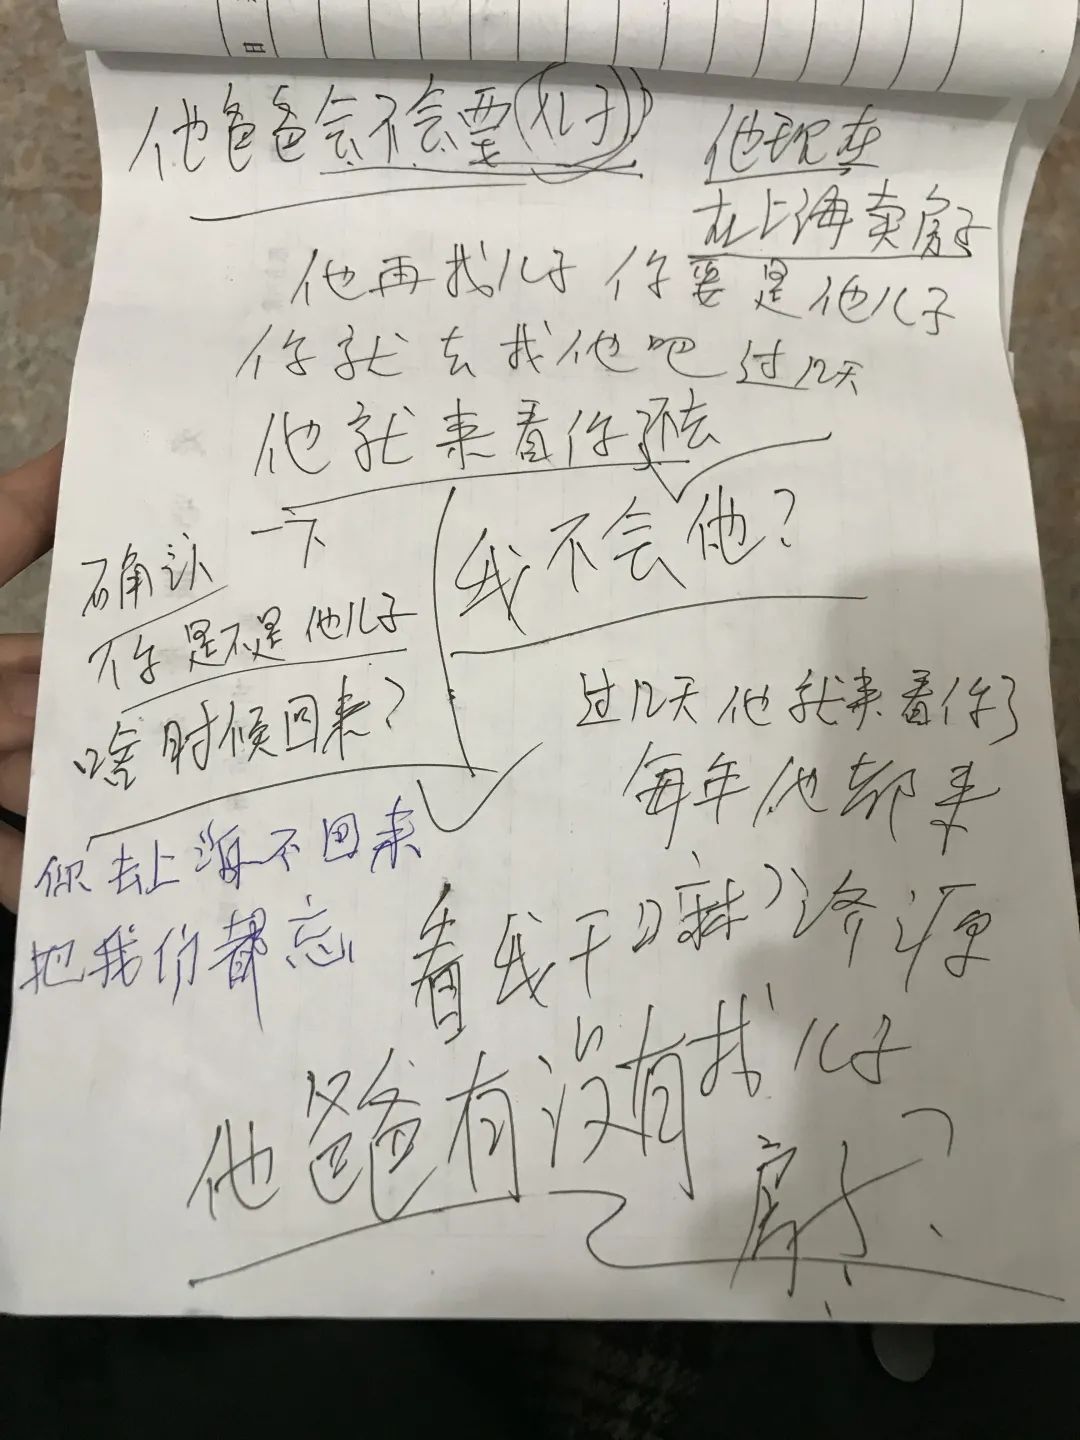 日
他爸爸会不会要(儿子)
他现在
在上海卖房子
他再找儿子 你要是他儿子
你就去找他吧 过几天
他就来看你 还去
一下
确认
你是不是他儿子
啥时候回来?
我不会他?
过几天他就来看你了
每年他都来
看我干嘛? 济源
你去上海不回来
把我们都忘
他爸爸有没有找儿子